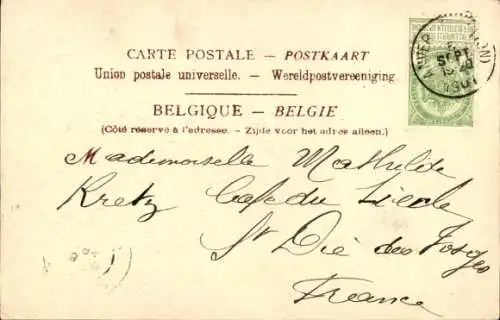 CARTE POSTALE – POSTKAART
Union postale universelle. – Wereldpostvereeniging.
BELGIQUE – BELGIE
(Côté réservé à l'adresse. – Zijde voor het adres alleen.)
Mademoiselle Mathilde
Kretz Café du Siècle
St Dié des Vosges
France